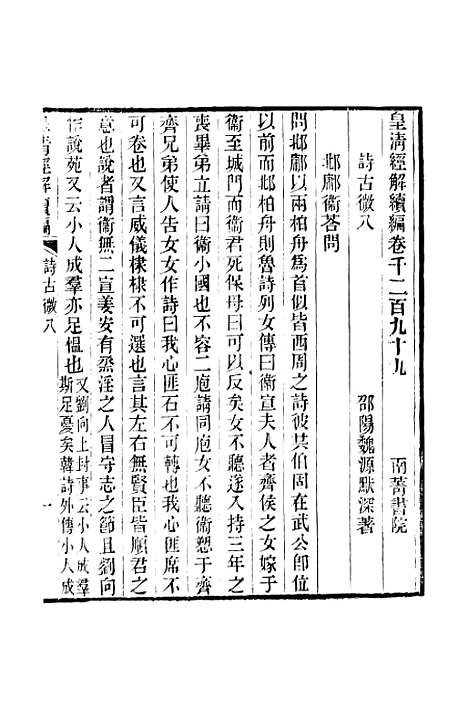 皇淸經解續編卷千二百九十九　南菁書院
詩古微八　邵陽魏源默深著
邶鄘衞荅問
問邶鄘以兩柏舟爲首似皆西周之詩彼其伯固在武公卽位
以前而邶柏舟則魯詩列女傳曰衞宣夫人者齊侯之女嫁于
衞至城門而衞君死保母曰可以反矣女不聽遂入持三年之
喪畢弟立請曰衞小國也不容二庖請同庖女不聽衞愬于齊
齊兄弟使人告女女作詩曰我心匪石不可轉也我心匪席不
可卷也又言威儀棣棣不可選也言其左右無賢臣皆順君之
意也說者謂衞無二宣姜安有烝淫之人冒守志之節且劉向
作說苑又云小人成羣亦足慍也又劉向上封事云小人成羣
斯足憂矣韓詩外傳小人成
皇淸經解續編　詩古微八　一